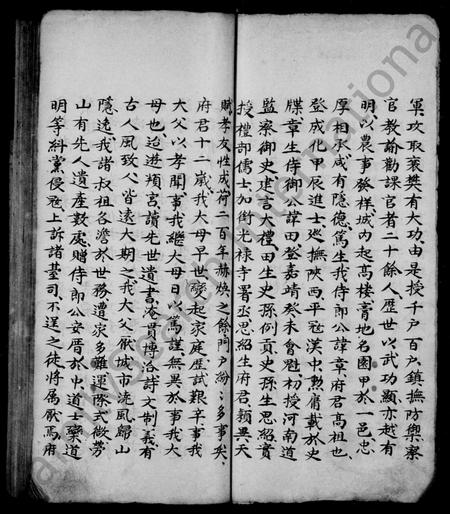 軍攻取襄樊有大功由是授千户百户鎮撫防禦察
官教諭勸課官者二十餘人歷世以武功顯亦越有
明以農事發祥城内起高樓膏地名園甲於一邑忠
厚相承咸有隱德篤生我侍郎公諱章府君高祖也
登成化甲辰進士巡撫陝西平冦漢中勲膚載於史
牒章生侍御公諱田登嘉靖癸未會魁初授河南道
監察御史建言一禮田生史孫例貢史孫生思紹資
授禮部儒士加銜光禄寺署丞思紹生府君穎異天
賦孝友性成荷二百年赫奕之餘門户紛紛多事矣
府君十二歲我大母早世發起家庭歷試艱辛事我
大父以孝聞事我繼大母日以篤謹無異於事我大
母也迨遊頖宫讀先世遺書淹貫博洽詩文制義有
古人風致人皆遠大期之我大父厭城市流風歸山
隱逸我諸叔祖各澹於世務遭家多難運際式微勞
山有先人遺産數處贈侍郎公安厝於中道士樂道
明等糾黨侵冦上訴諸䑓司不逞之徒將厲厭焉府